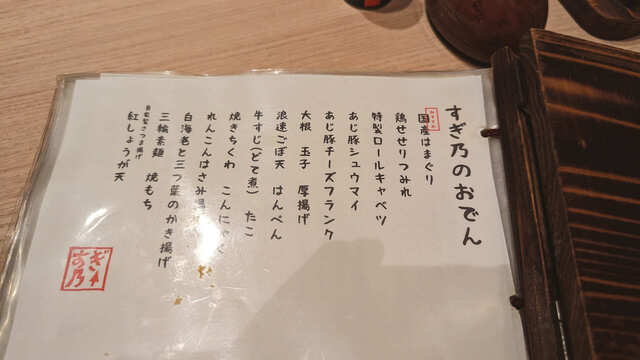 すぎ乃のおでん
おすすめ
国産はまぐり
鶏せせりつみれ
特製ロールキャベツ
あじ豚シュウマイ
あじ豚チーズフランク
大根 玉子 厚揚げ
浪速ごぼ天 はんぺん
牛すじ(どて煮) たこ
焼きちくわ こんにゃく
れんこんはさみ揚げ
白海老と三つ葉のかき揚げ
三輪素麺 焼もち
自家製さつま揚げ
紅しょうが天
すぎ乃